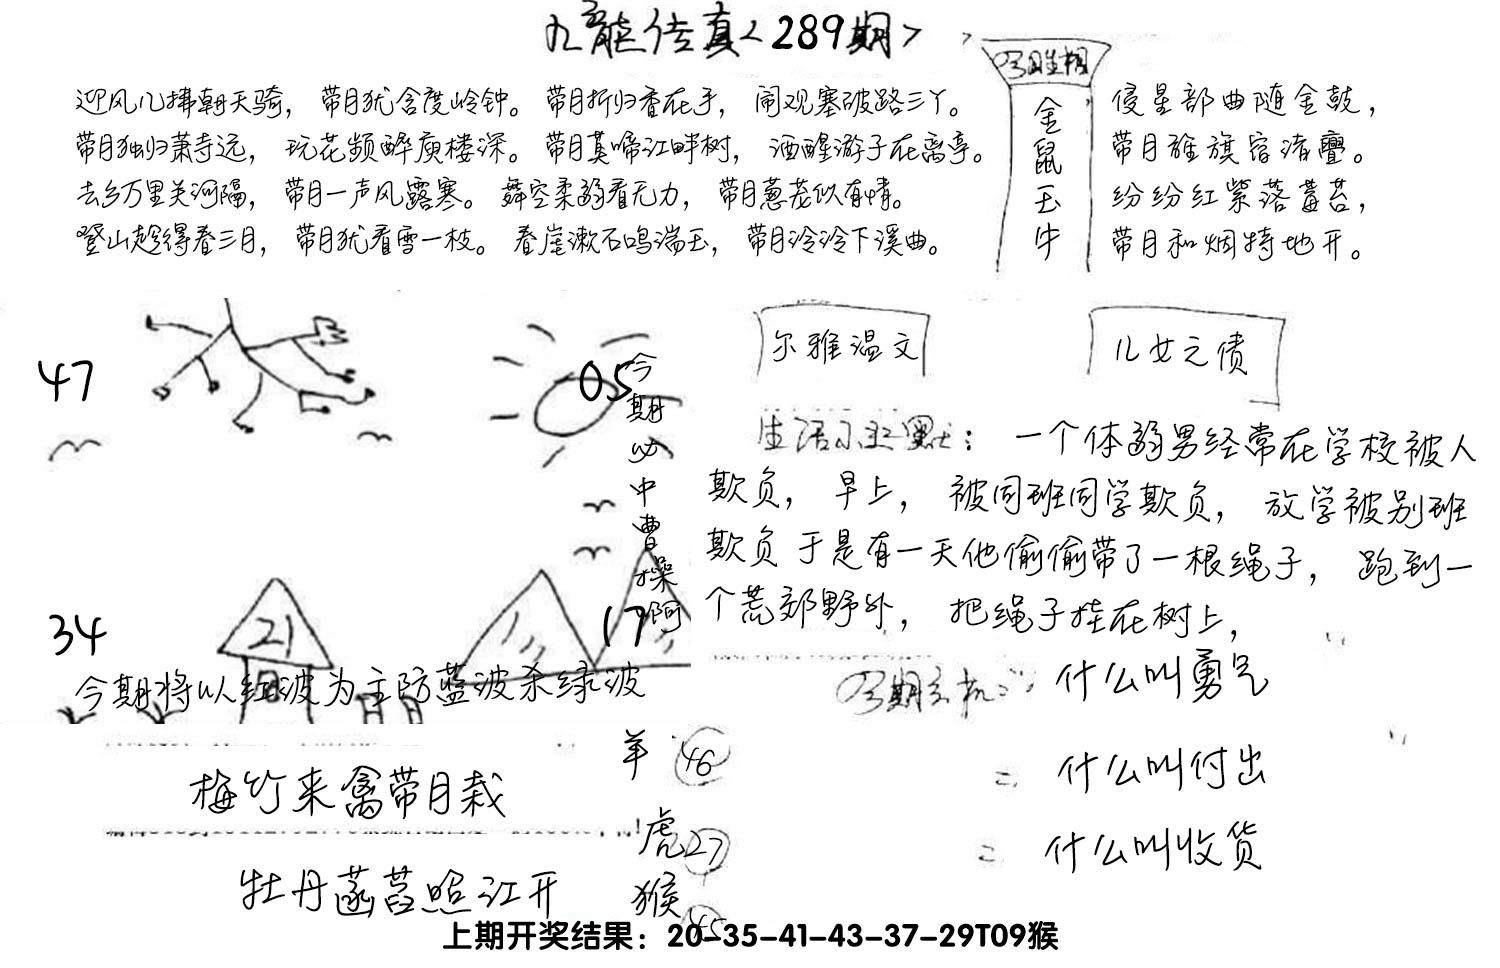 九龍传真<289期>
迎风几拂朝天骑，带月犹含度岭钟。带月折归香在手，闹观塞破路三丫。
带月独归萧寺远，玩花频醉庾楼深。带月莫啼江畔树，酒醒游子在离亭。
去乡万里关河隔，带月一声风露寒。舞空柔弱看无力，带月葱茏似有情。
登山趁得春三月，带月犹看雪一枝。春崖漱石鸣湍玉，带月泠泠下溪曲。
金鼠玉牛
侵星部曲随金鼓，
带月旌旗宿渚亹。
纷纷红紫落莓苔，
带月和烟特地开。
47
05
34
21
17
今期必中曹操阿
今期将以红波为主防蓝波杀绿波
尔雅温文
儿女之债
一个体弱男经常在学校被人
欺负，早上，被同班同学欺负，放学被别班
欺负于是有一天他偷偷带了一根绳子，跑到一
个荒郊野外，把绳子挂在树上，
什么叫勇气
什么叫付出
什么叫收货
梅竹来禽带月栽
牡丹菡萏照江开
羊 46
虎 27
猴 45
上期开奖结果：20-35-41-43-37-29T09猴